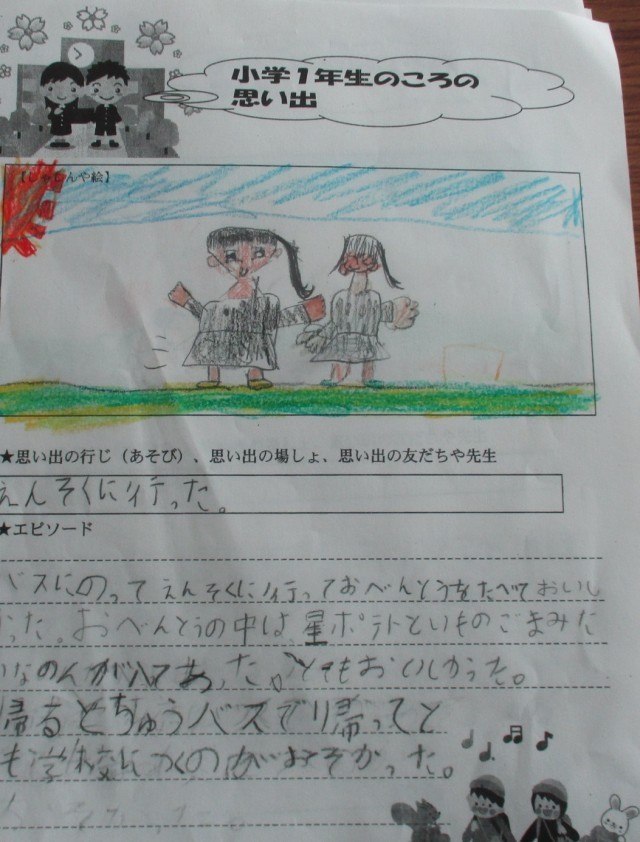 小学1年生のころの
思い出
【しゃしんや絵】
★思い出の行じ（あそび）、思い出の場しょ、思い出の友だちや先生
えんそくに行った。
★エピソード
バスにのって えんそくに行っておべんとうをたべて おいし
かった。おべんとうの中は 星ポテトといものごまみた
いなのんが入てあった。とてもおいしかった。
帰るとちゅうバスで帰ってと
も学校につくのがおそかった。